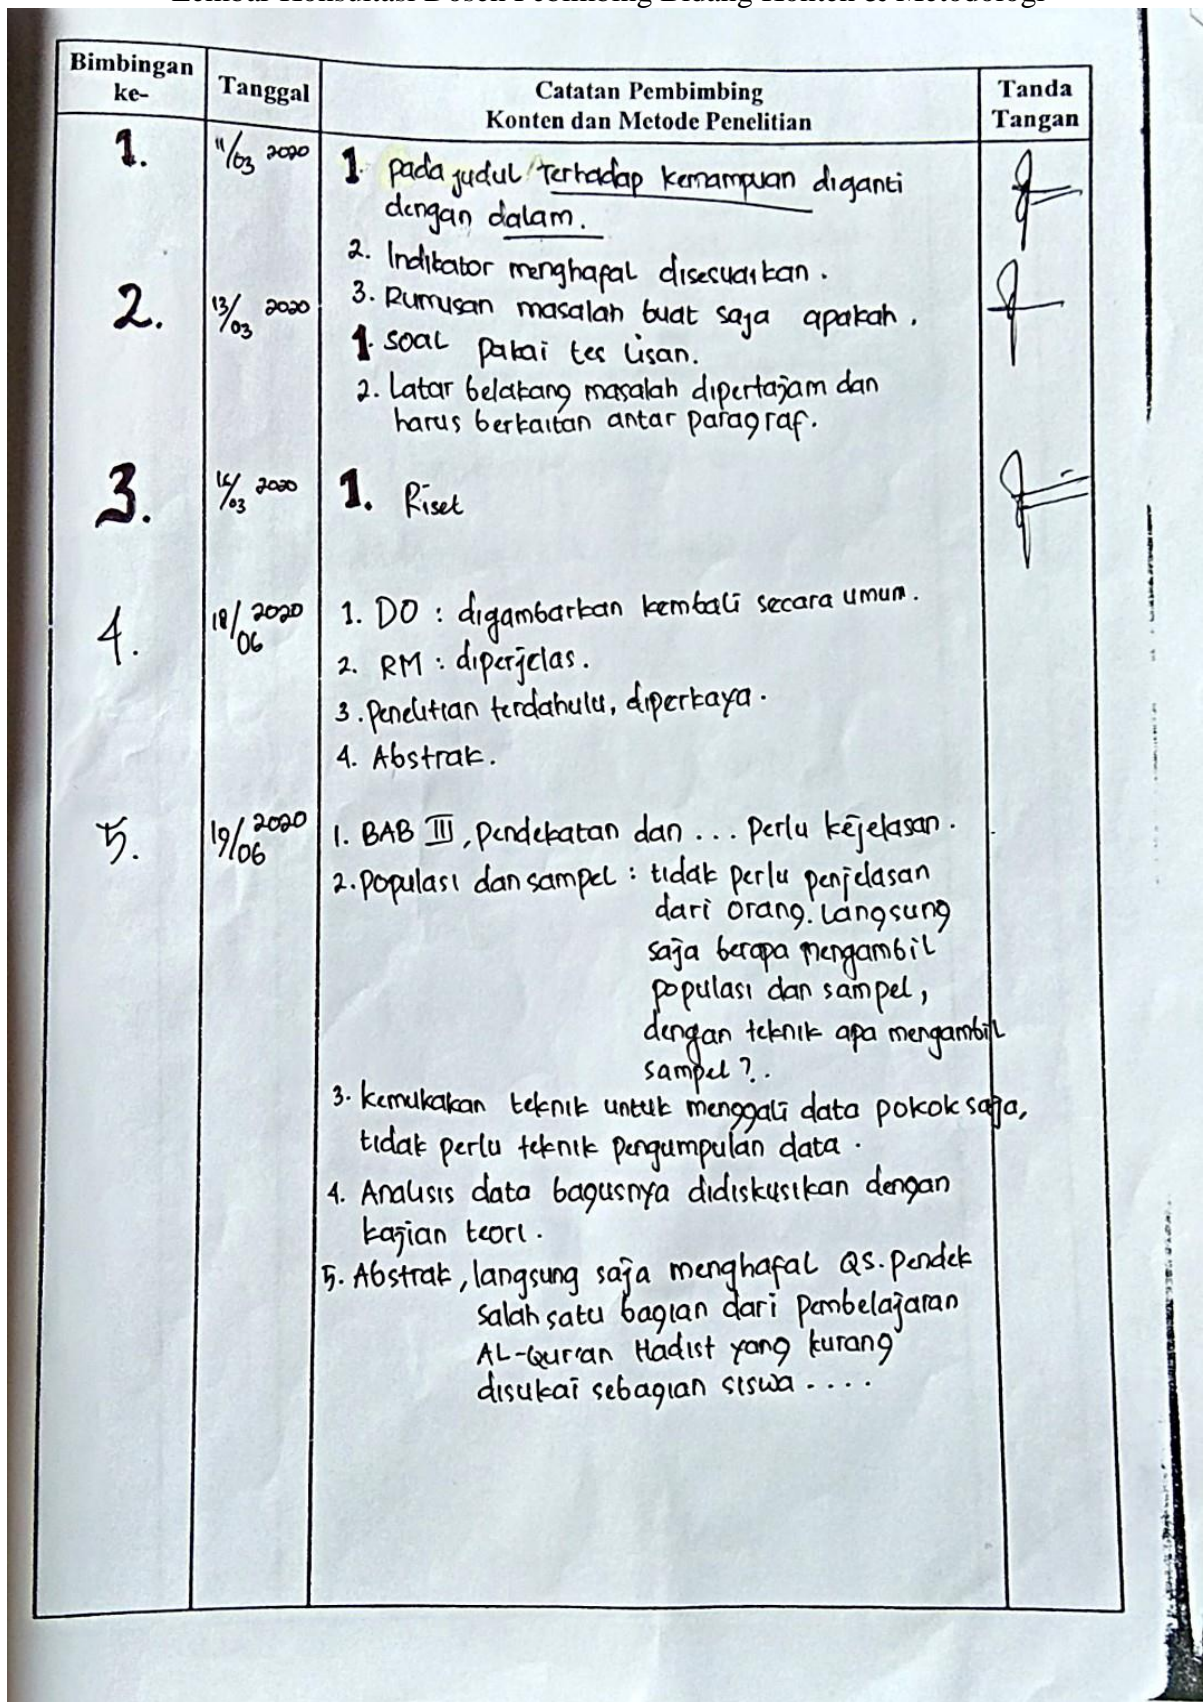 Bimbingan ke- Tanggal Catatan Pembimbing Konten dan Metode Penelitian Tanda Tangan
1. 11/03 2020 1. pada judul terhadap kemampuan diganti
dengan dalam.
2. Indikator menghafal disesuaikan.
2. 13/03 2020 3. Rumusan masalah buat saja apakah.
1. soal pakai tes lisan.
2. Latar belakang masalah dipertajam dan
harus berkaitan antar paragraf.
3. /03 2020 1. Riset
4. 18/06 2020 1. DO : digambarkan kembali secara umum.
2. RM : diperjelas.
3. Penelitian terdahulu, diperkaya.
4. Abstrak.
5. 19/06 2020 1. BAB III, pendekatan dan ... perlu kejelasan.
2. populasi dan sampel : tidak perlu penjelasan
dari orang. Langsung
saja berapa mengambil
populasi dan sampel,
dengan teknik apa mengambil
sampel ?.
3. kemukakan teknik untuk menggali data pokok saja,
tidak perlu teknik pengumpulan data.
4. Analisis data bagusnya didiskusikan dengan
kajian teori.
5. Abstrak, langsung saja menghafal QS. pendek
salah satu bagian dari pembelajaran
AL-Qur'an Hadist yang kurang
disukai sebagian siswa ....